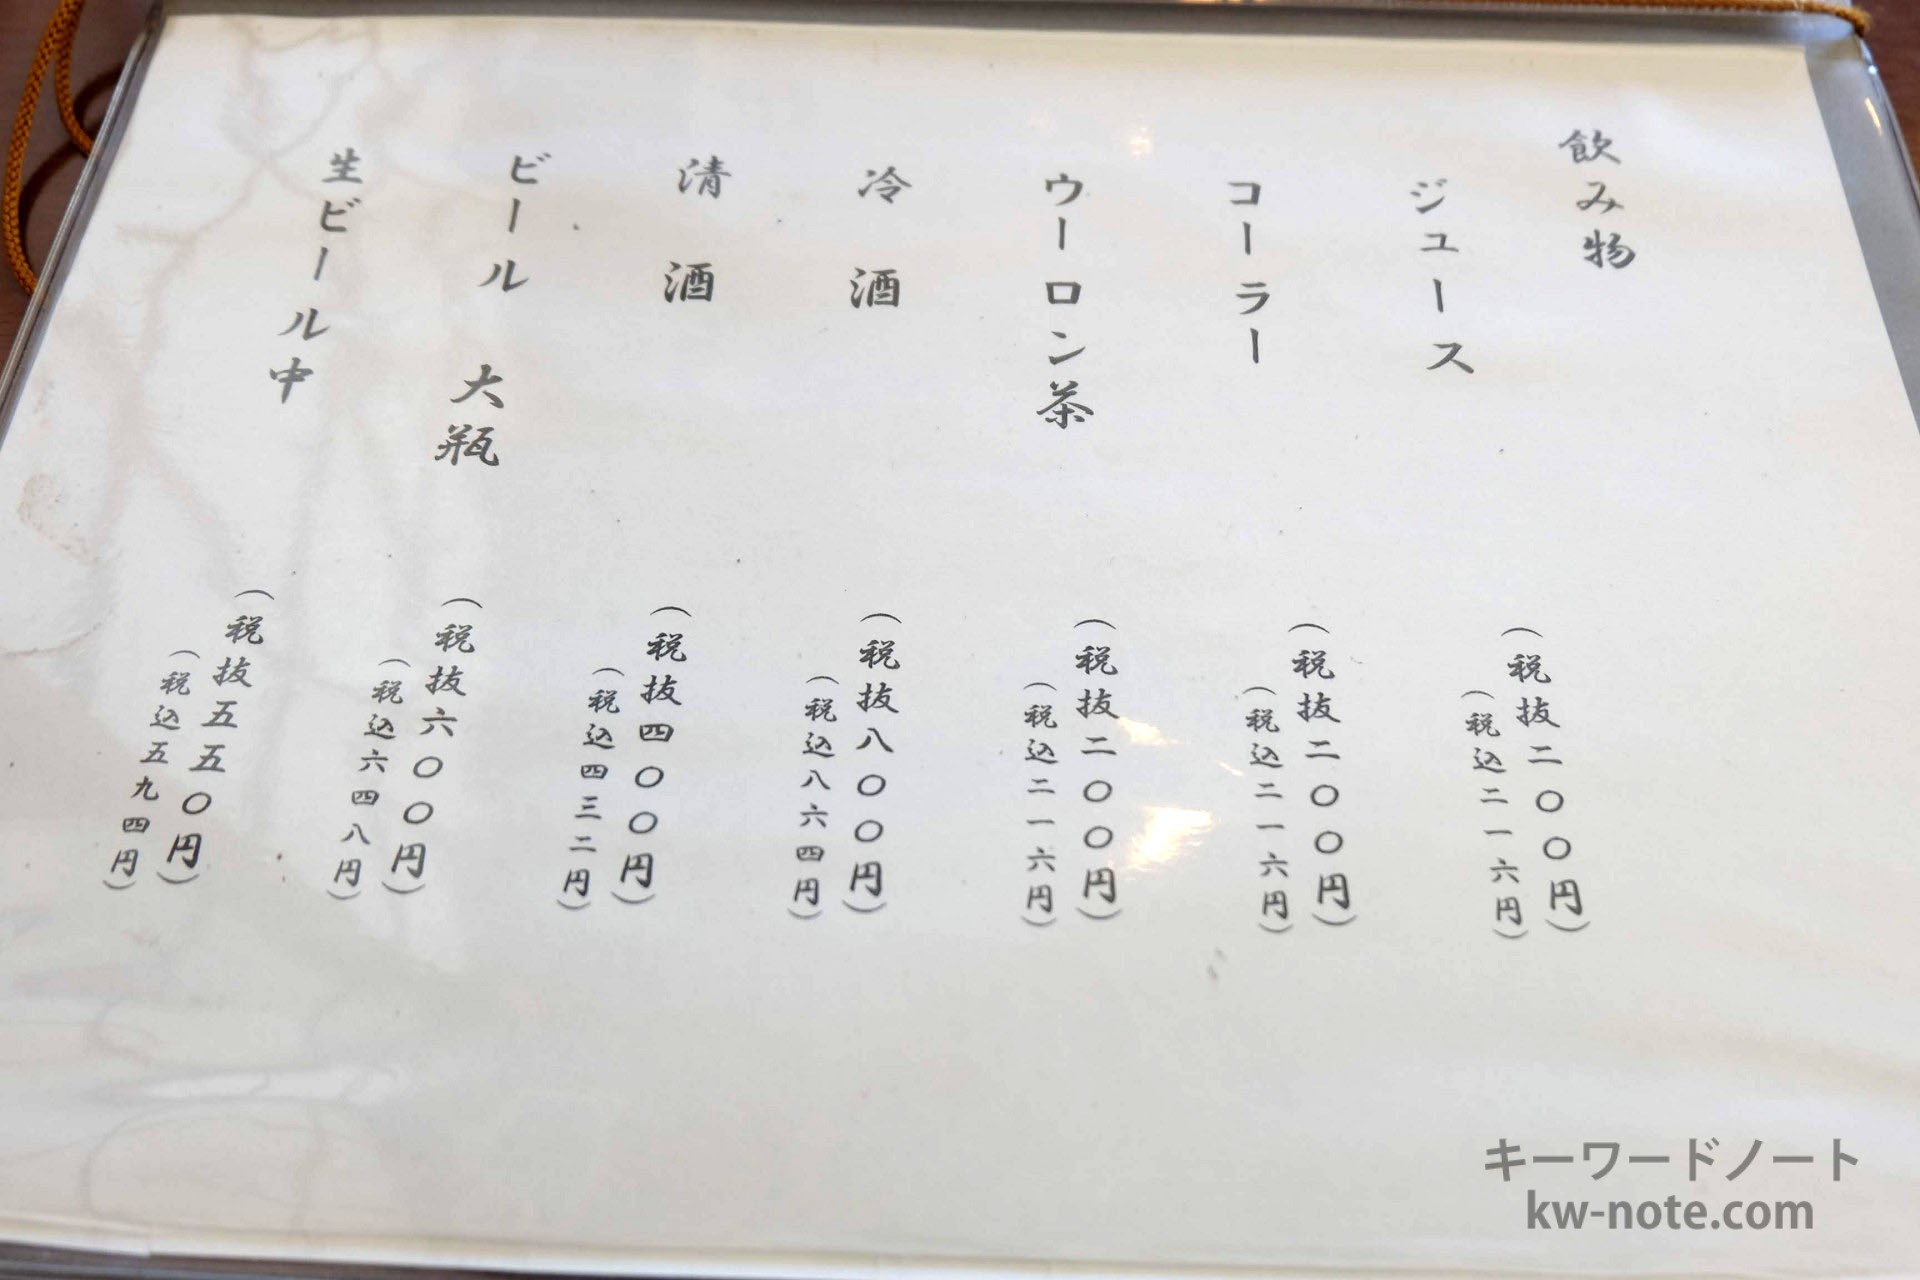 飲み物
ジュース
(税抜二〇〇円)
(税込二一六円)
コーラー
(税抜二〇〇円)
(税込二一六円)
ウーロン茶
(税抜二〇〇円)
(税込二一六円)
冷酒
(税抜八〇〇円)
(税込八六四円)
清酒
(税抜四〇〇円)
(税込四三二円)
ビール 大瓶
(税抜六〇〇円)
(税込六四八円)
生ビール中
(税抜五五〇円)
(税込五九四円)
キーワードノート
kw-note.com